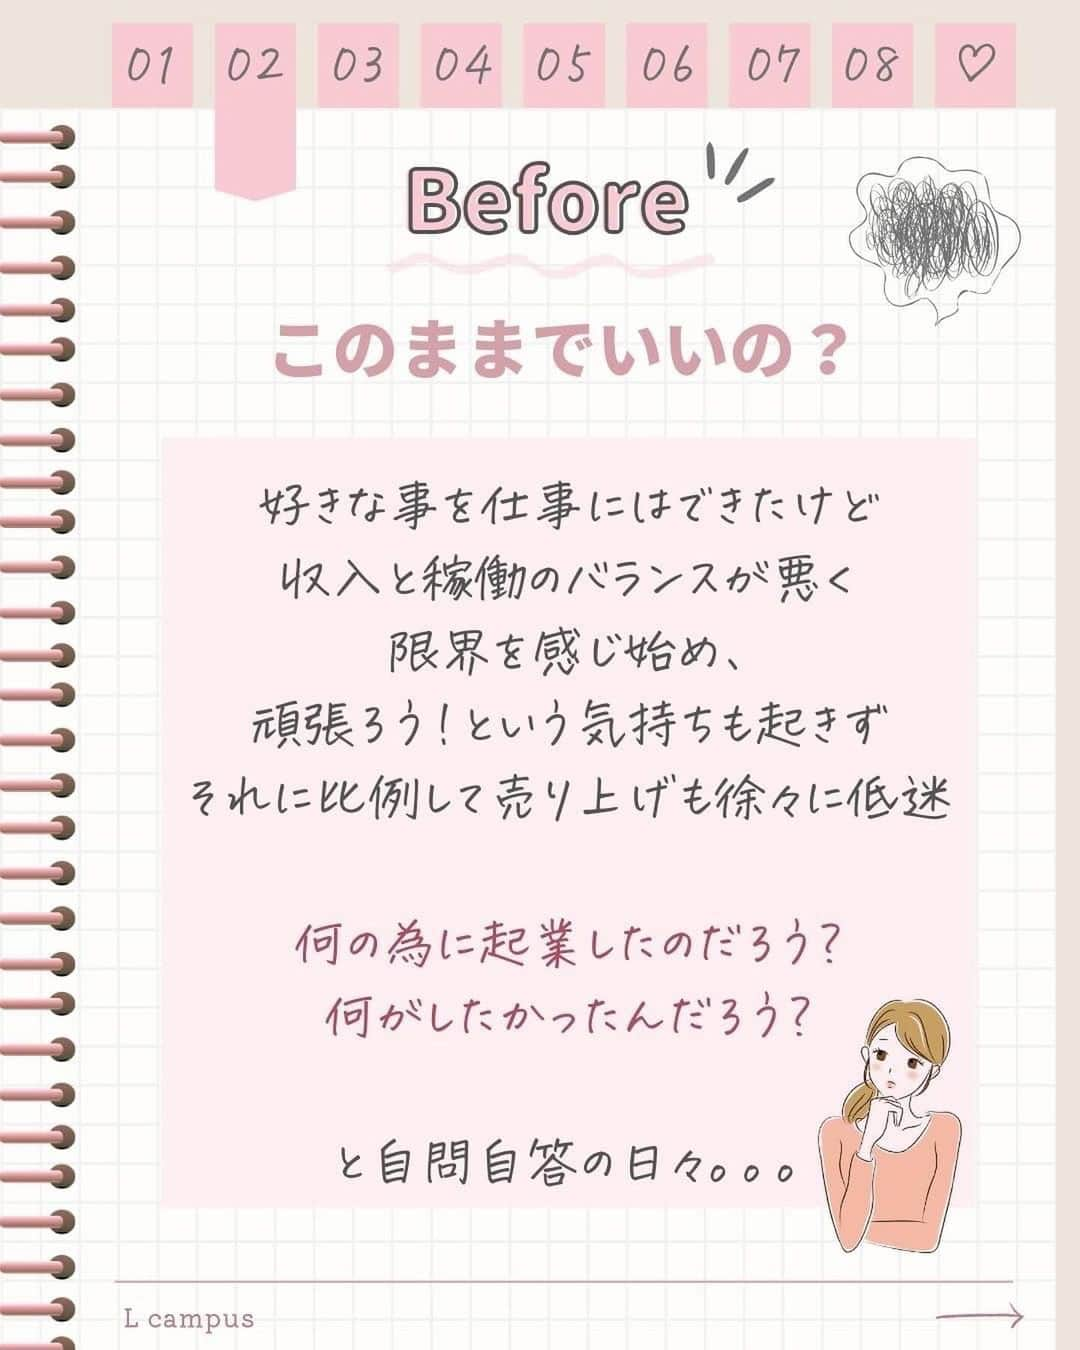 01 02 03 04 05 06 07 08 ♡
Before
このままでいいの？
好きな事を仕事にはできたけど
収入と稼働のバランスが悪く
限界を感じ始め、
頑張ろう！という気持ちも起きず
それに比例して売り上げも徐々に低迷
何の為に起業したのだろう？
何がしたかったんだろう？
と自問自答の日々。。。
L campus